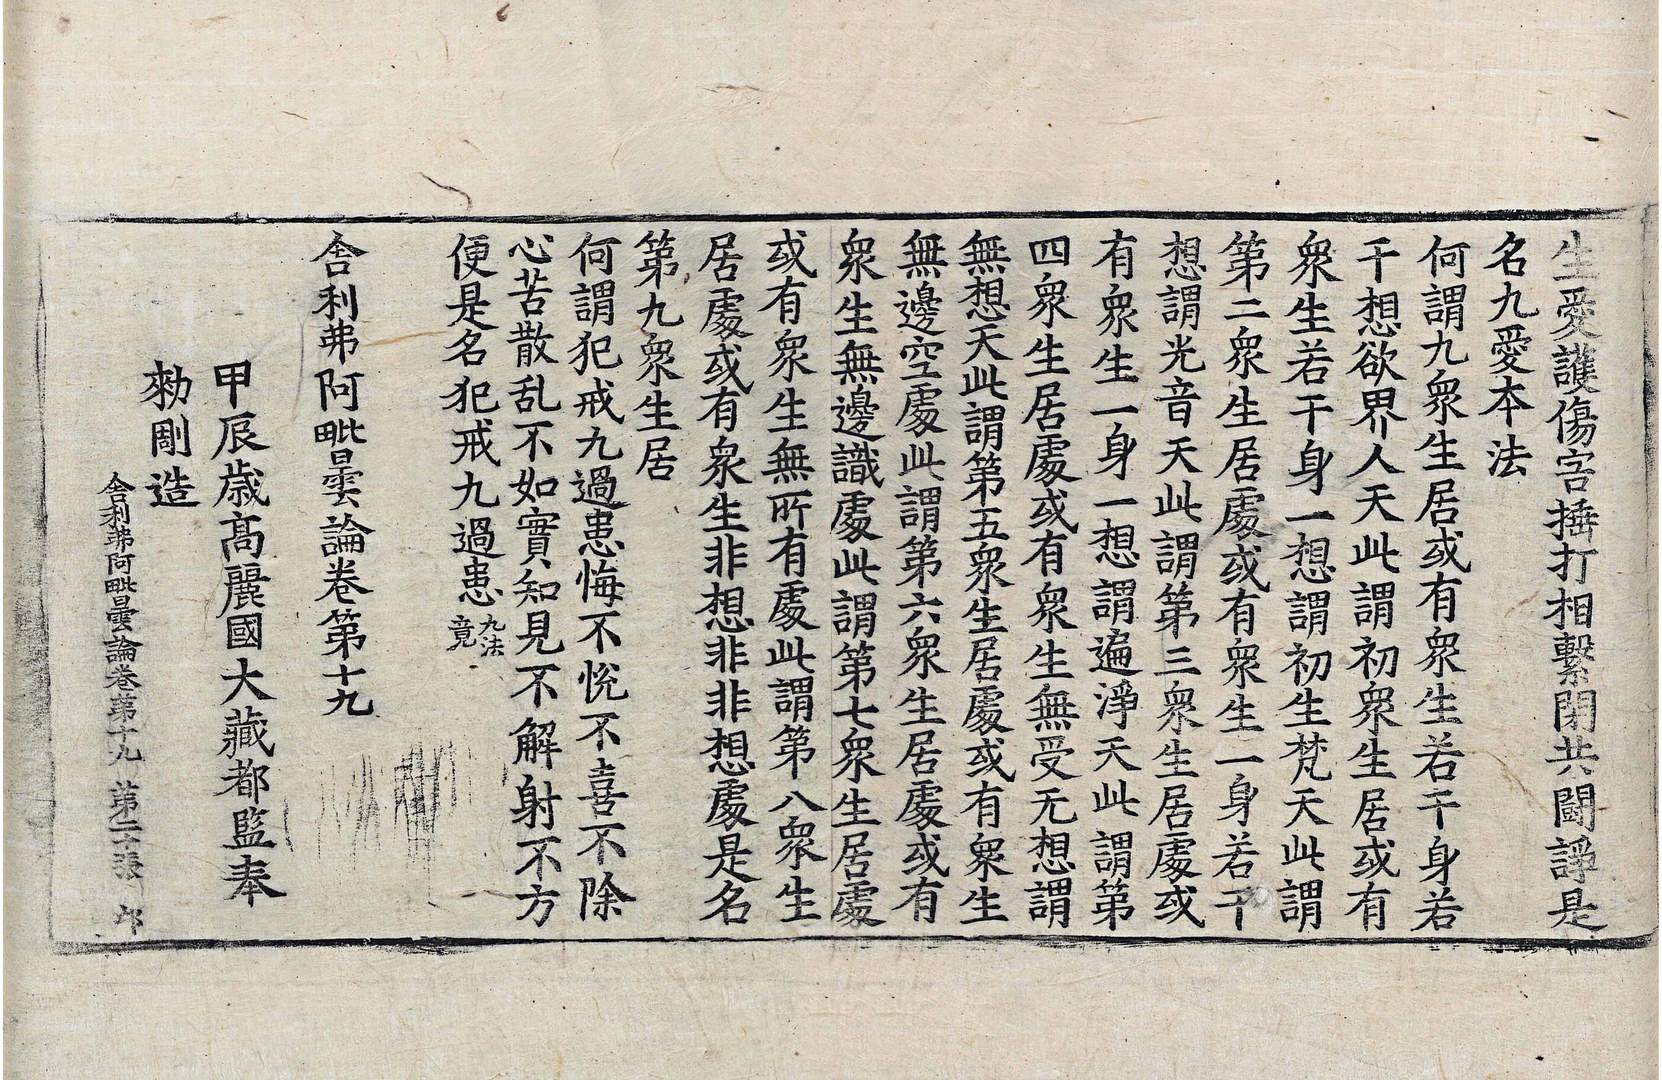 生愛護傷害捶打相繫閉共闘諍是
名九愛本法
何謂九衆生居或有衆生若干身若
干想欲界人天此謂初衆生居或有
衆生若干身一想謂初生梵天此謂
第二衆生居處或有衆生一身若干
想謂光音天此謂第三衆生居處或
有衆生一身一想謂遍淨天此謂第
四衆生居處或有衆生無受无想謂
無想天此謂第五衆生居處或有衆生
無邊空處此謂第六衆生居處或有
衆生無邊識處此謂第七衆生居處
或有衆生無所有處此謂第八衆生
居處或有衆生非想非非想處是名
第九衆生居
何謂犯戒九過患悔不悅不喜不除
心苦散乱不如實知見不解射不方
便是名犯戒九過患九法竟
舍利弗阿毗曇論卷第十九
甲辰歲高麗國大藏都監奉
勑彫造
舍利弗阿毗曇論卷第十九 第二十張